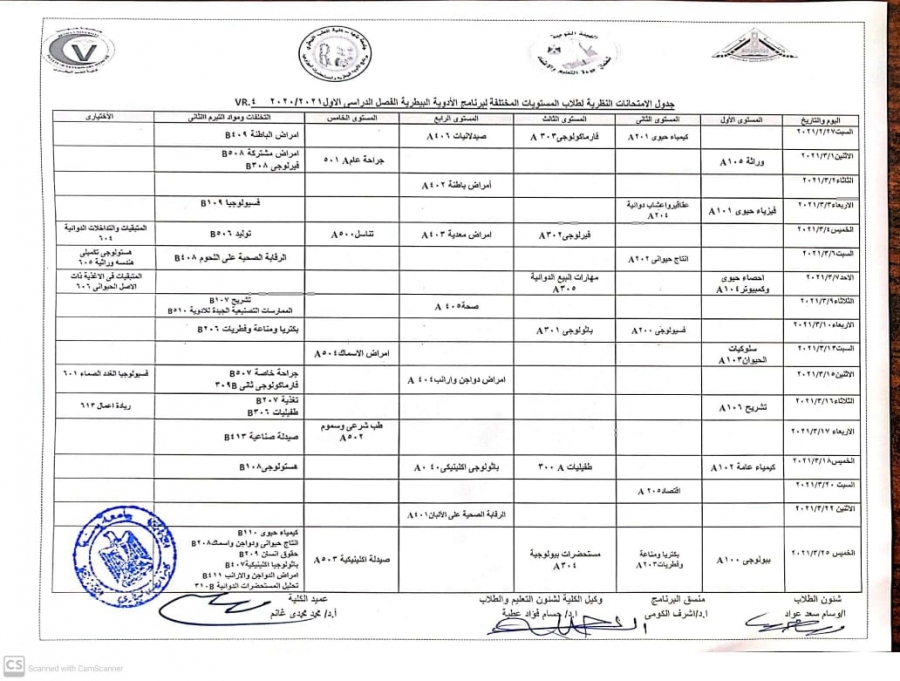 جدول الامتحانات النظرية لطلاب المستويات المختلفة لبرنامج الأدوية البيطرية الفصل الدراسى الاول ٢٠٢٠/٢٠٢١ VR.٤
اليوم والتاريخ المستوى الأول المستوى الثانى المستوى الثالث المستوى الرابع المستوى الخامس التخلفات ومواد التيرم الاثانى الأختيارى
السبت٢٠٢١/٢/٢٧ كيمياء حيوى A٢٠١ فارماكولوجى A ٣٠٣ صيدلانيات A٤٠٦ امراض الباطنة B٤٠٩
الاثنين٢٠٢١/٣/١ وراثة A١٠٥ جراحة عام A٥٠١ امراض مشتركة B٥٠٨
فيرلوجى B٣٠٨
الثلاثاء٢٠٢١/٣/٢ أمراض باطنة A٤٠٢
الاربعاء٢٠٢١/٣/٣ فيزياء حيوى A١٠١ عقاقيرواعشاب دوائية A٢٠٤ فسيولوجيا B١٠٩
الخميس٢٠٢١/٣/٤ فيرلوجىA٣٠٢ امراض معدية A٤٠٣ تناسل A٥٠٠ توليد B٥٠٦ المتبقيات والتداخلات الدوائية ٦٠٤
السبت٢٠٢١/٣/٦ انتاج حيوانى A٢٠٢ الرقابة الصحية على اللحوم B٤٠٨ هستولوجى تكميلى
هندسه وراثية ٦٠٥
الاحد٢٠٢١/٣/٧ احصاء حيوى وكمبيوترA١٠٤ مهارات البيع الدوائية A٣٠٥ المتبقيات فى الاغذية ذات الاصل الحيوانى ٦٠٦
الثلاثاء٢٠٢١/٣/٩ صحة A ٤٠٥ تشريح B١٠٧
الممارسات التصنيعية الجيدة للادوية B٥١٠
الاربعاء٢٠٢١/٣/١٠ فسيولوجى A٢٠٠ باثولوجى A٣٠١ بكتريا ومناعة وفطريات B٢٠٦
السبت٢٠٢١/٣/١٣ سلوكيات الحيوانA١٠٣ امراض الاسماك A٥٠٤
الاثنين٢٠٢١/٣/١٥ امراض دواجن وارانب A٤٠٤ جراحة خاصة B٥٠٧
فارماكولوجى ثانى ٣٠٩B فسيولوجيا الغدد الصماء ٦٠١
الثلاثاء٢٠٢١/٣/١٦ تشريح A١٠٦ تغذية B٢٠٧
طفيليات B٣٠٦ ريادة اعمال ٦١٣
الاربعاء ٢٠٢١/٣/١٧ طب شرعى وسموم A٥٠٢ صيدلة صناعية B٤١٣
الخميس٢٠٢١/٣/١٨ كيمياء عامة A١٠٢ طفيليات A ٣٠٠ باثولوجى اكلينيكى A٤٠٠ هستولوجىB١٠٨
السبت ٢٠٢١/٣/٢٠ اقتصاد A٢٠٥
الاثنين ٢٠٢١/٣/٢٢ الرقابة الصحية على الألبان A٤٠١
الخميس ٢٠٢١/٣/٢٥ بيولوجى A١٠٠ بكتريا ومناعة وفطرياتA٢٠٣ مستحضرات بيولوجية A٣٠٤ صيدلة اكلينيكية A٥٠٣ كيمياء حيوى B١١٠
انتاج حيوانى ودواجن واسماكB٢٠٨
حقوق انسان B٢٠٩
باثولوجيا اكلينيكيةB٤٠٧
امراض الدواجن والارانب B٤١١
تحليل المستحضرات الدوائية ٣١٠B
شئون الطلاب منسق البرنامج وكيل الكلية لشئون التعليم والطلاب عميد الكلية
الوسام سعد عواد ا.د/اشرف الكومى ا.د/حسام فؤاد عطية أ.د/ محمد محمدى غانم
CS Scanned with CamScanner